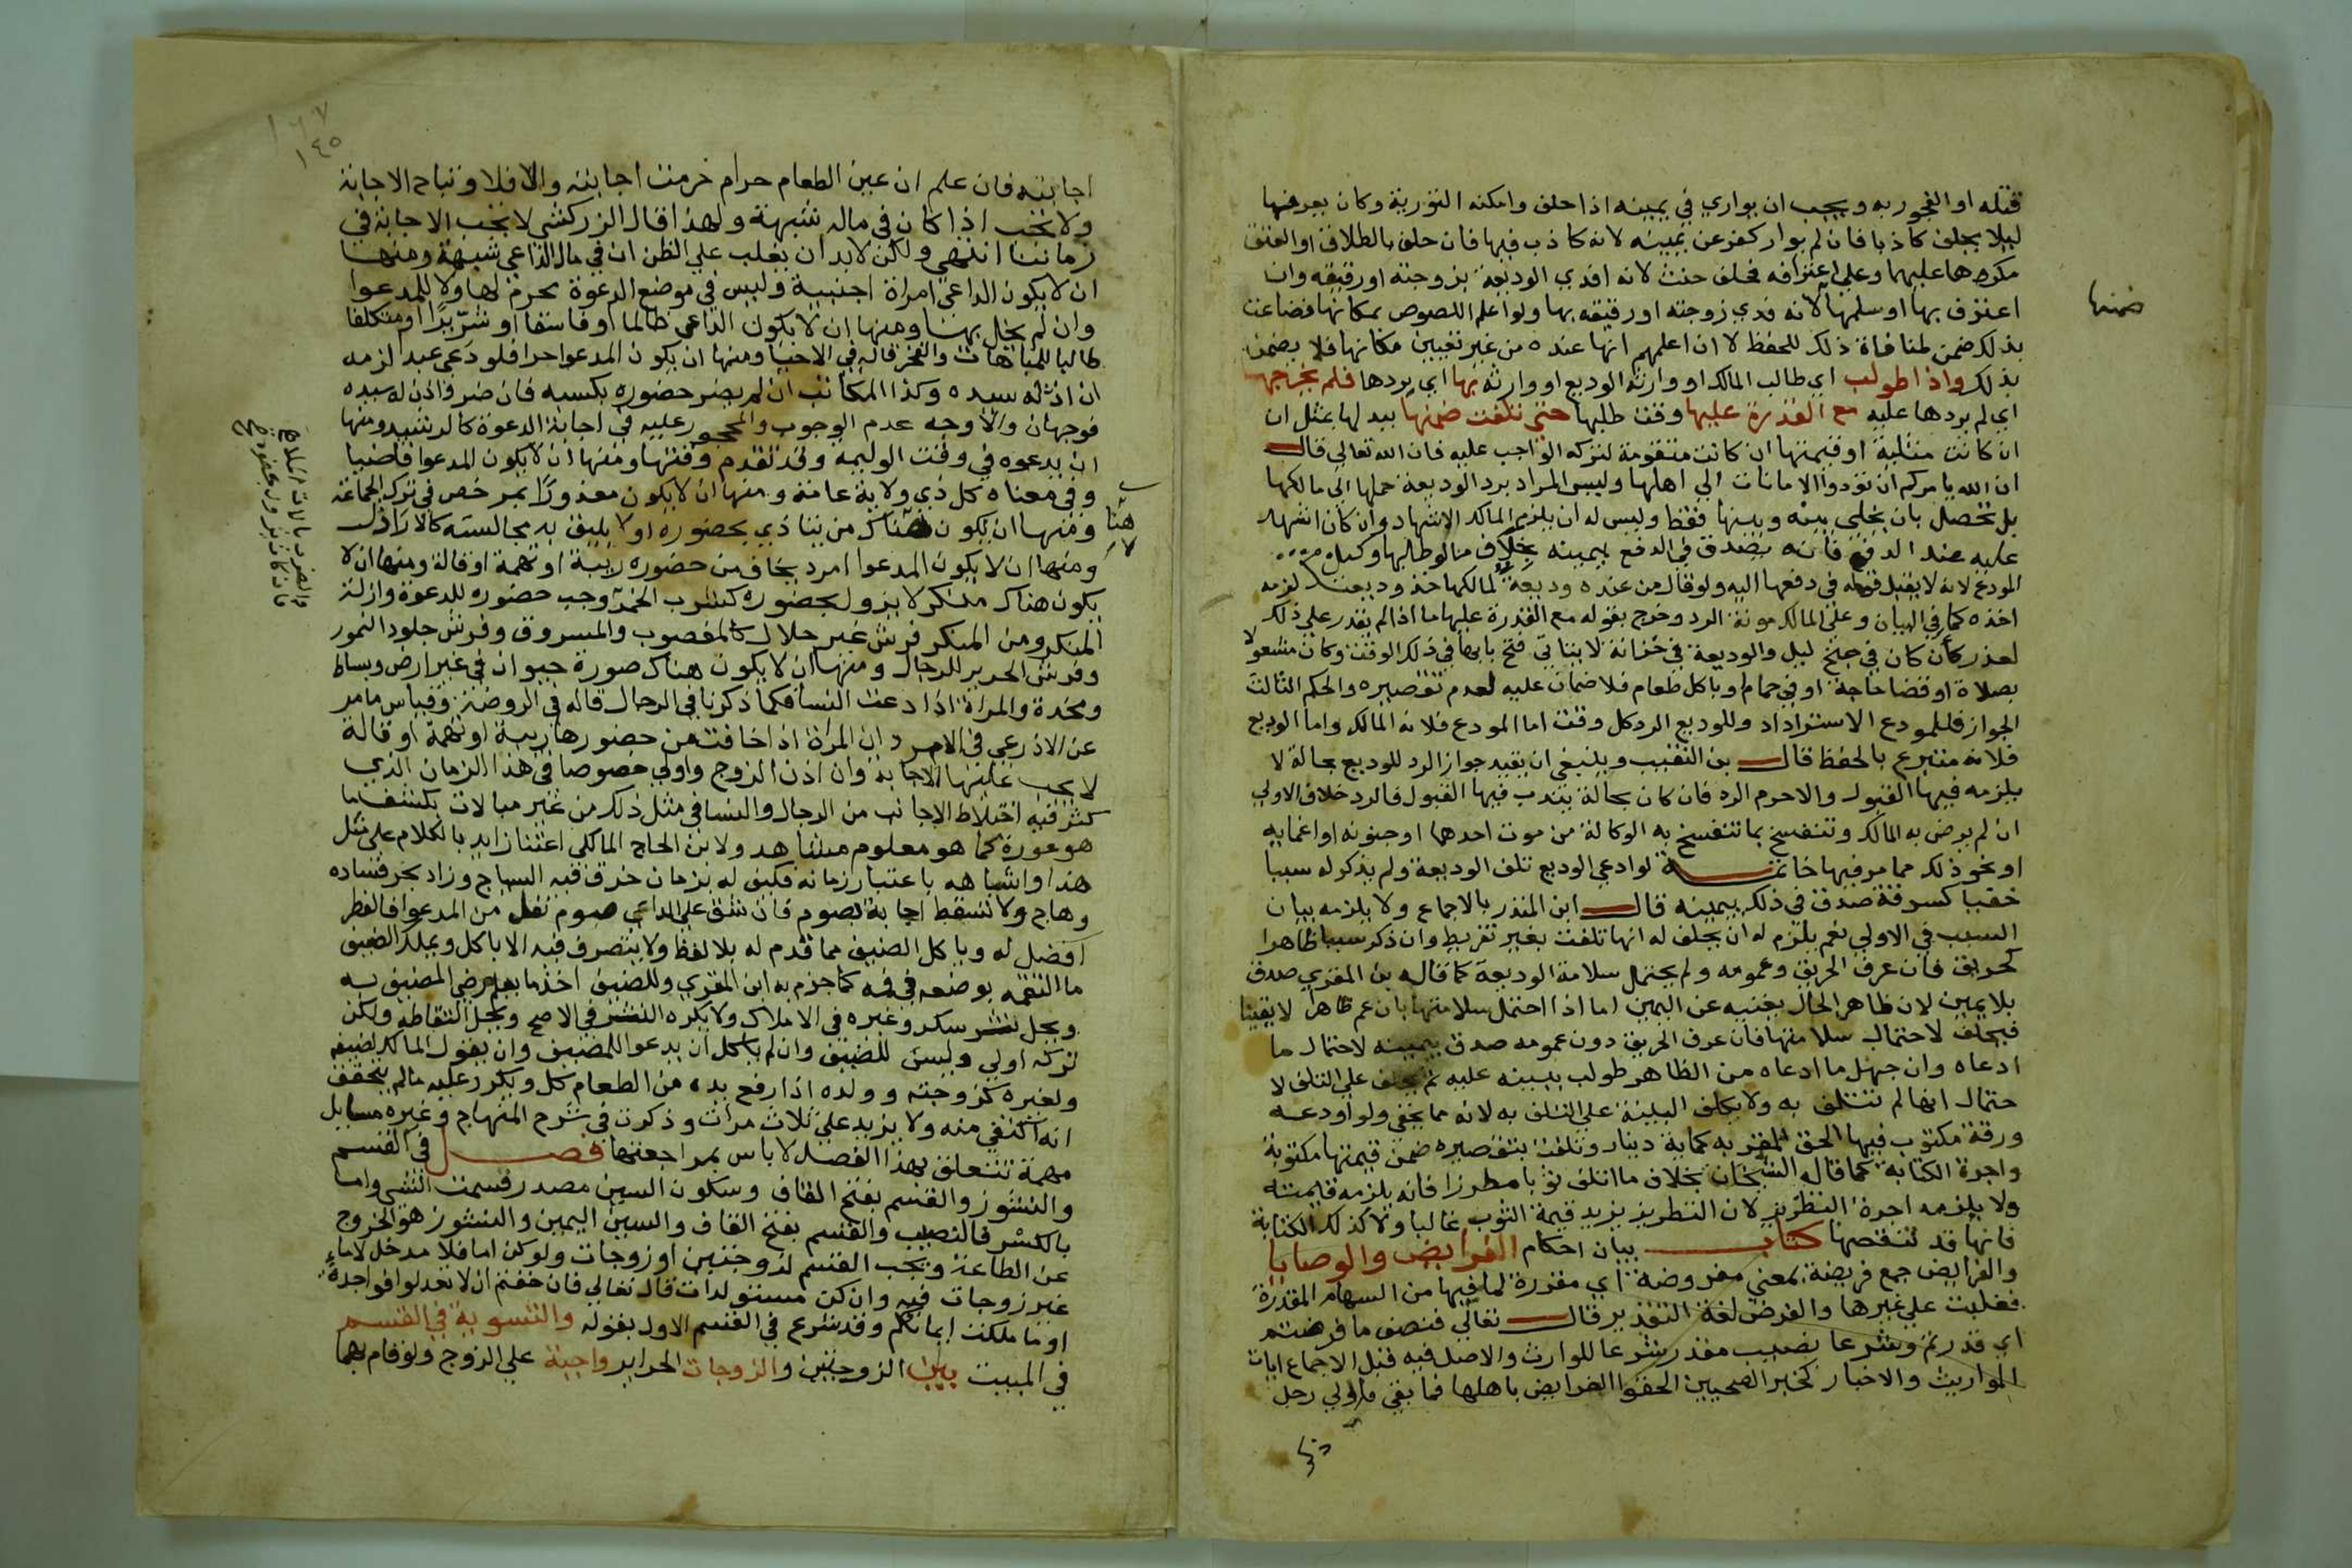 قتله او الفجور به ويجب ان يواري في يمينه اذا حلف وامكنه التورية وكان يعرفها
ليلا يحلف كاذبا فان لم يوار كفر عن يمينه لانه كاذب فيها فان حلف بالطلاق او العتق
مكرها عليهما وعلي اعترافه فحلف حنث لانه افدي الوديعة بزوجته او رقيقه وان
اعترف بها او سلمها لانه فدي زوجته او رقيقه بها ولو اعلم اللصوص بمكانها فضاعت
ضمنها
بذلك ضمن لمنافاة ذلك للحفظ لا ان اعلمهم انها عنده من غير تعيين مكانها فلا يضمن
بذلك واذا طولب اي طالب المالك او وارثه الوديع او وارثه بها اي بردها فلم يخرجها
اي لم يردها عليه مع القدرة عليها وقت طلبها حتي تلفت ضمنها ببدلها بمثل ان
ان كانت مثلية او قيمتها ان كانت متقومة لتركه الواجب عليه فان الله تعالي قال
ان الله يامركم ان تودوا الامانات الي اهلها وليس المراد برد الوديعة حملها الي مالكها
بل تحصل بان يخلي بينه وبينها فقط وليس له ان يلزم المالك الاشهاد وان كان اشهد
عليه عند الدفع فانه يصدق في الدفع بيمينه بخلاف ما لو طالبها وكيل
المودع لانه لا يقبل قوله في دفعها اليه ولو قال من عنده وديعة لمالكها خذ وديعتك لزمه
اخذه كما في البيان وعلي المالك مونة الرد وخرج بقوله مع القدرة عليها ما اذا لم يقدر علي ذلك
لعذر كأن كان في جنح ليل والوديعة في خزانة لا يتاتي فتح بابها في ذلك الوقت وكان مشغولا
بصلاة او قضا حاجة او في حمام او ياكل طعام فلا ضمان عليه لعدم تقصيره والحكم الثالث
الجواز فللمودع الاسترداد وللوديع الرد كل وقت اما المودع فلانه المالك واما الوديع
فلانه متبرع بالحفظ قال بن النقيب وينبغي ان يقيد جواز الرد للوديع بحالة لا
يلزمه فيها القبول والاحرم الرد فان كان بحالة يندب فيها القبول فالرد خلاف الاولي
ان لم يرض به المالك وتنفسخ بما تنفسخ به الوكالة من موت احدهما او جنونه او اغمايه
او نحو ذلك مما مر فيها خاتمة لو ادعي الوديع تلف الوديعة ولم يذكر له سببا
خفيا كسرقة صدق في ذلك بيمينه قال ابن المنذر بالاجماع ولا يلزمه بيان
السبب في الاولي نعم يلزم له ان يحلف له انها تلفت بغير تفريط وان ذكر سببا ظاهرا
كحريق فان عرف الحريق وعمومه ولم يحتمل سلامة الوديعة كما قاله بن المقري صدق
بلا يمين لان ظاهر الحال يغنيه عن اليمين اما اذا احتمل سلامتها بان عم ظاهرا لا يقينا
فيحلف لاحتمال سلامتها فان عرف الحريق دون عمومه صدق بيمينه لاحتمال ما
ادعاه وان جهل ما ادعاه من الظاهر طولب ببينه عليه ثم يحلف علي التلف لا
حتمال انها لم تتلف به ولا يكلف البينة علي التلف به لانه مما يخفي ولو اودعه
ورقة مكتوب فيها الحق المقر به كماية دينار وتلفت بتقصيره ضمن قيمتها مكتوبة
واجرة الكتابة كما قاله الشيخان بخلاف ما اتلف ثوبا مطرزا فانه يلزمه قيمته
ولا يلزمه اجرة التطريز لان التطريز يزيد قيمة الثوب غالبا ولا كذلك الكتابة
فانها قد تنقصها كتاب بيان احكام الفرايض والوصايا
والفرايض جمع فريضة بمعني مفروضة اي مقدرة لما فيها من السهام المقدرة
فغلبت علي غيرها والفرض لغة التقدير قال تعالي فنصف ما فرضتم
اي قدرتم وشرعا نصيب مقدر شرعا للوارث والاصل فيه قبل الاجماع ايات
المواريث والاخبار كخبر الصحيحين الحقوا الفرايض باهلها فما بقي فلاولي رجل
١٦٧
١٤٥
اجابته فان علم ان عين الطعام حرام حرمت اجابته والا فلا وتباح الاجابة
ولا تجب اذا كان في ماله شبهة ولهذا قال الزركشي لا تجب الاجابة في
زماننا انتهي ولكن لابد ان يغلب علي الظن ان في مال الداعي شبهة ومنها
ان لا يكون الداعي امراة اجنبية وليس في موضع الدعوة محرم لها ولا للمدعوا
وان لم يخل بها ومنها ان لا يكون الداعي ظالما او فاسقا او شريرا او متكلفا
طالبا للمباهات والفخر قاله في الاحيا ومنها ان يكون المدعو احرا فلو دعي عبد لزمه
ان اذن له سيده وكذا المكاتب ان لم يضر حضوره بكسبه فان ضر واذن له سيده
فوجهان والاوجه عدم الوجوب والمحجور عليه في اجابة الدعوة كالرشيد ومنها
ان يدعوه في وقت الوليمة وقد تقدم وقتها ومنها ان لا يكون المدعوا قاضيا
وفي معناه كل ذي ولاية عامة ومنها ان لا يكون معذورا بمرخص في ترك الجماعة
ومنها ان يكون هناك من يتاذي بحضوره او لا يليق به مجالسته كالاراذل
هنا
لا
ومنها ان لا يكون المدعوا امرد يخاف من حضوره ريبة او تهمة او قالة ومنها ان لا
يكون هناك منكر لا يزول بحضوره كشرب الخمر وجب حضوره للدعوة وازالة
المنكر ومن المنكر فرش غير حلال كالمغصوب والمسروق وفرش جلود النمور
وفرش الحرير للرجال ومنها ان لا يكون هناك صورة حيوان في غير ارض وبساط
ومخدة والمراة اذا دعت النسا فكما ذكرنا في الرجال قاله في الروضة وقياس ما مر
عن الاذرعي في الامرد ان المراة اذا خافت من حضورها ريبة او تهمة او قالة
لا يجب عليها الاجابة وان اذن الزوج واولي خصوصا في هذا الزمان الذي
كثر فيه اختلاط الاجانب من الرجال والنسا في مثل ذلك من غير مبالات بكشف ما
هو عورة كما هو معلوم مشاهد ولابن الحاج المالكي اعتنا زايد بالكلام علي مثل
هذا واشباهه باعتبار زمانه فكيف له بزمان خرق فيه السياج وزاد بحر فساده
وهاج ولا تسقط اجابة بصوم فان شق علي الداعي صوم نفل من المدعوا فالفطر
افضل له وياكل الضيف مما قدم له بلا لفظ ولا يتصرف فيه الا باكل ويملك الضيف
ما التقمه بوضعه في فيه كما جزم به ابن المقري وللضيف اخذ ما يعلم رضي المضيف به
ويحل نثر سكر وغيره في الاملاك ولا يكره النثر في الاصح ويحل التقاطه ولكن
تركه اولي ويسن للضيف وان لم ياكل ان يدعوا للمضيف وان يقول المالك لضيفه
ولغيره كزوجته وولده اذا رفع يده من الطعام كل ويكرر عليه ما لم يتحقق
انه اكتفي منه ولا يزيد علي ثلاث مرات وذكرت في شرح المنهاج وغيره مسايل
مهمة تتعلق بهذا الفصل لا باس بمراجعتها فصل في القسم
والنشوز والقسم بفتح القاف وسكون السين مصدر قسمت الشي واما
بالكسر فالنصيب والقسم بفتح القاف والسين اليمين والنشوز هو الخروج
عن الطاعة ويجب القسم لزوجتين او زوجات ولو كن اما فلا مدخل لاماء
غير زوجات فيه وان كن مستولدات قال تعالي فان خفتم ان لا تعدلوا فواحدة
او ما ملكت ايمانكم وقد شرع في القسم الاول بقوله والتسوية في القسم
في المبيت بين الزوجتين والزوجات الحراير واجبة علي الزوج ولو قام بهما